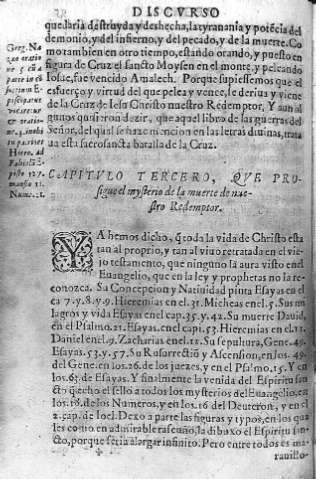 DISCVRSO
quedaria destruyda y deshecha, la tyrania y potēcia del
demonio, y del infierno, y del pecado, y de la muerte. Co
mo tambien en otro tiempo, estando orando, y puesto en
figura de Cruz el sancto Moysen en el monte, y peleando
Iosue, fue vencido Amalech. Porque supiessemos que el
esfuerço y virtud del que pelea y vence, le deriua y viene
de la Cruz de Iesu Christo nuestro Redemptor. Y aun al
gunos quisieron dezir, que aquel libro de las guerras del
Señor, del qual se haze mencion en las letras diuinas, trata
ua esta sacrosancta batalla de la Cruz.
Greg. Na
Hiero. ad
Nume. 21.
CAPITVLO TERCERO, QVE PRO-
sigue el mysterio de la muerte de nue-
stro Redemptor.
YA hemos dicho, q̃ toda la vida de Christo esta
tan al proprio, y tan al viuo retratada en el vie
jo testamento, que ninguno la aura visto en el
Euangelio, que en la ley y prophetas no la re-
conozca. Su Concepcion y Natiuidad pinta Esayas en el
ca 7. y.8. y 9. Hieremias en el.31. Micheas en el.5. Sus mi
lagros y vida Esayas en el cap.35. y.42. Su muerte Dauid,
en el Psalmo.21. Esayas en el capi.53. Hieremias en el.11.
Daniel en el.9. Zacharias en el.12. Su sepultura, Gene.49.
Esayas.53. y.57. Su Resurrectiō y Ascension, en los.49.
del Gene. en los.26. de los juezes, y en el Psalmo.15. Y en
los.63. de Esayas. Y finalmente la venida del Espiritu san
cto q̃ echo el sello a todos los mysterios del Euangelio, en
los.18. de los Numeros, y en los.16 del Deuteron, y en el
2. cap. de Ioel. Dexo a parte las figuras y typos, en los qua
les como en admirable rascuño, la dibuxo el Espiritu san-
cto, porque seria alargar infinito. Pero entre todos es ma
rauillo-